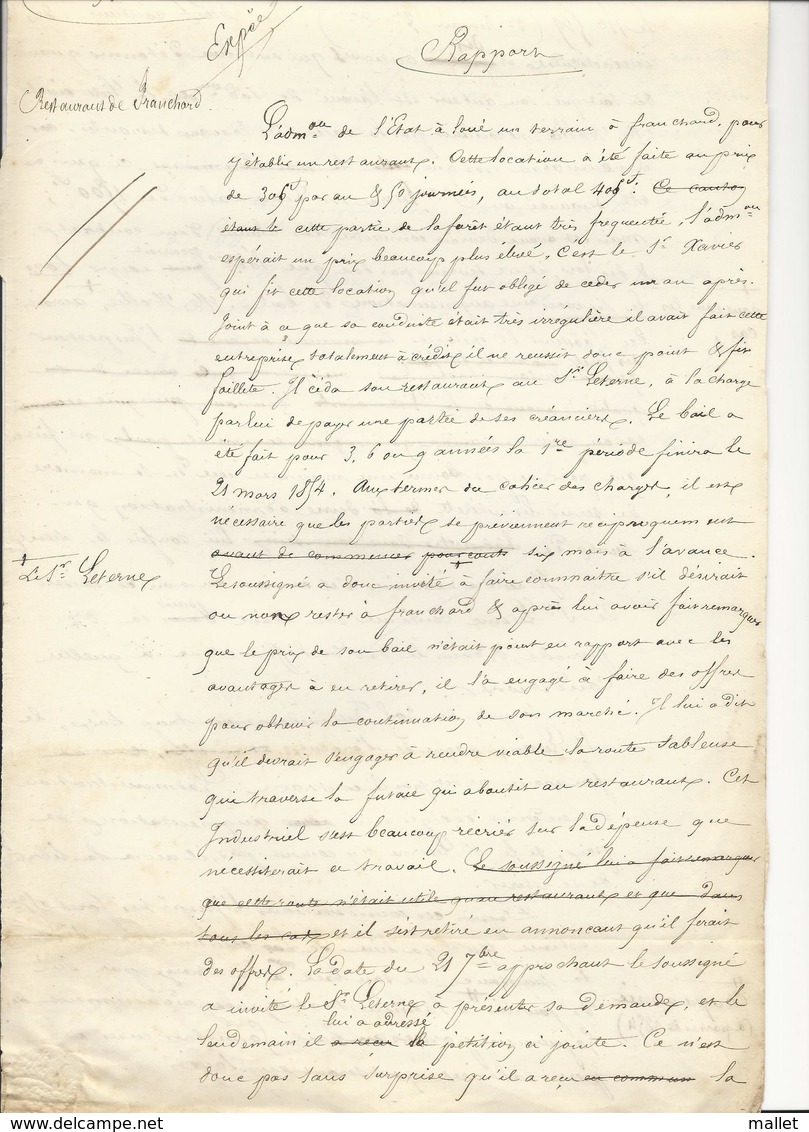 Expée
Rapport
Restaurant de Franchard
L'adm.on de l'Etat à loué un terrain à franchard, pour
y établir un restaurant. Cette location a été faite au prix
de 306f par an & 50 journées, au total 406f: Ce canton
étant té cette partie de la forêt étant très frequentée, l'adm.on
espérait un prix beaucoup plus élevé, c'est le Sr Xavier
qui fit cette location qu'il fut obligé de ceder un an après.
Joint à ce que sa conduite était très irrégulière il avait fait cette
entreprise totalement à crédit, il ne reussit donc point & fit
faillite. Il céda son restaurant au Sr Leterne, à la charge
par lui de payer une partie de ses créanciers. Le bail a
été fait pour 3, 6 ou 9 années la 1re période finira le
21 mars 1854. Aux termes du cahier des charges, il est
nécessaire que les parties se préviennent réciproquement
avant de commencer six mois à l'avance.
Le Sr Leterne
Le soussigné a donc invité à faire connaitre s'il désirait
ou non rester à franchard & après lui avoir fait remarquer
que le prix de son bail n'était point en rapport avec les
avantages à en retirer, il l'a engagé à faire des offres
pour obtenir la continuation de son marché. Il lui a dit
qu'il devrait s'engager à rendre viable la route sableuse
qui traverse la futaie qui aboutit au restaurant. Cet
Industriel s'est beaucoup récrié sur la dépense que
nécessiterait ce travail. Le soussigné lui a fait remarquer
que cette route n'était utile qu'au restaurant et que dans
tous les cas et il s'est retiré en annonçant qu'il ferait
des offres. La date du 21 7bre approchant le soussigné
a invité le Sr Leterne à présenter sa demande, et le
lui a adressé
lendemain il a reçu la petition ci jointe. Ce n'est
donc pas sans surprise qu'il a reçu en commun la
mallet